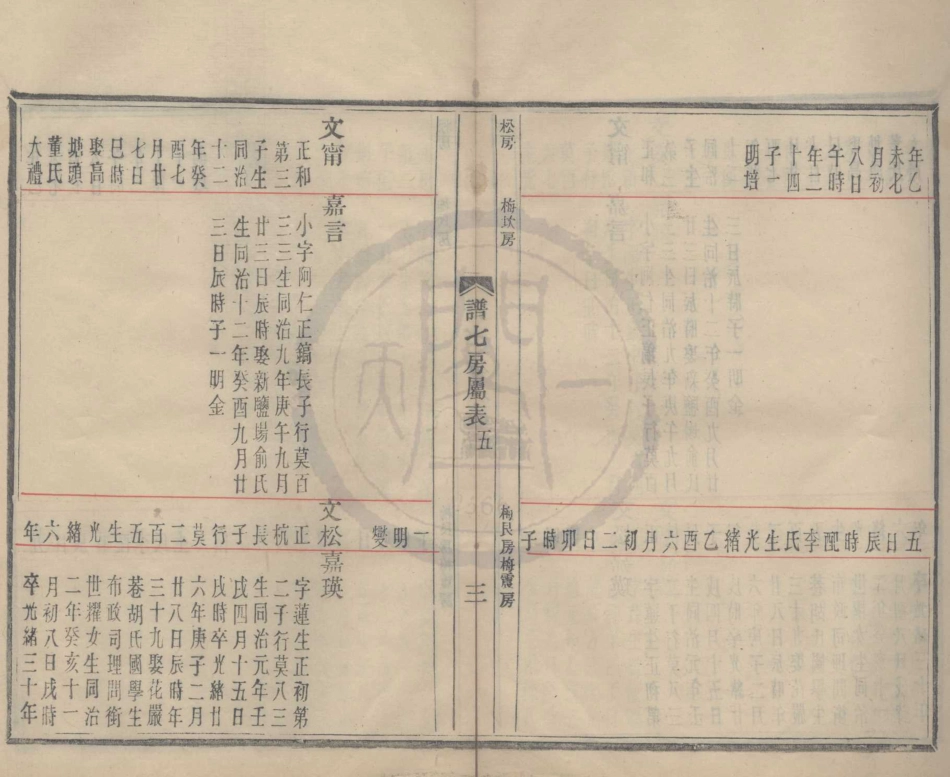 年乙
未七
月初
八日
午時
年二
十四
子一
明培
五日辰時配李氏生光緒乙酉六月初二日卯時子
松房
梅坎房
梅艮房梅震房
譜七房屬表五
三
文甯
正和
第三
子生
同治
十二
年癸
酉七
月廿
七日
巳時
娶高
塘頭
董氏
大禮
嘉言
小字阿仁正鎬長子行莫百
三三生同治九年庚午九月
廿三日辰時娶新鹽場俞氏
生同治十二年癸酉九月廿
三日辰時子一明金
一明燮
文松
正杭長子行莫二百五生光緒六年
嘉瑛
字蓮生正初第
二子行莫八三
生同治元年壬
戌四月十五日
戌時卒光緒廿
六年庚子二月
廿八日辰時年
三十九娶花嚴
菴胡氏國學生
布政司理問銜
世耀女生同治
二年癸亥十一
月初八日戌時
卒光緒三十年